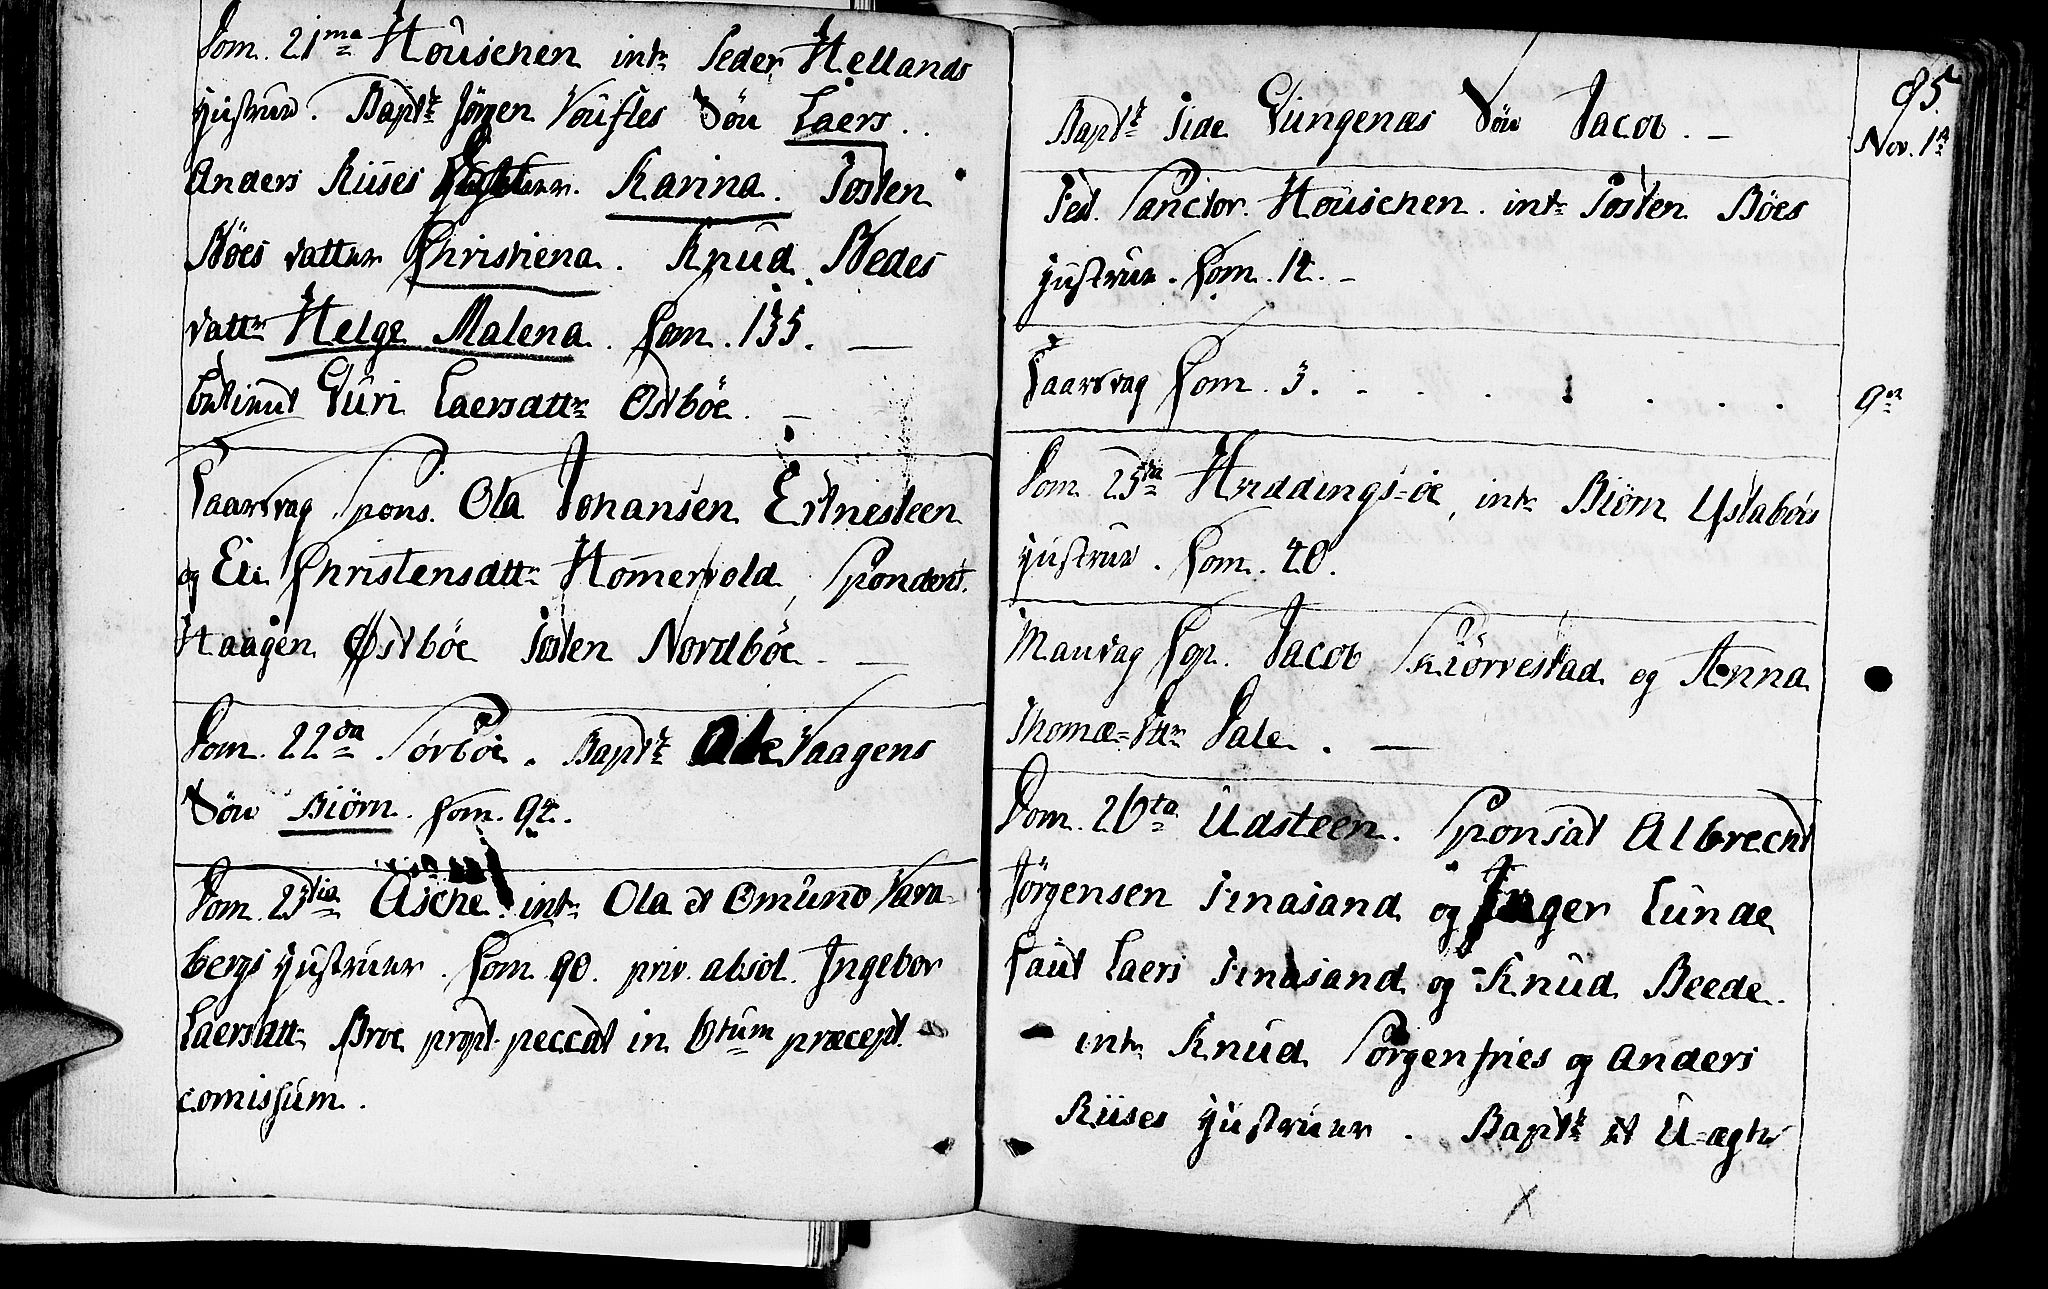 Dom. 21ma Houschen intr Peder Hellands
hustrue. Baptt Jörgen Voustes Sön Laers.
Anders Riises Karina. Josten
Böes datter Christiena. Knud Bedes
dattr Helge Malena. Com. 135. —
Guri Laersdttr Østböe. —
Taarsdag Spons. Ola Johansen Eltnesteen
og Eli Christensdttr Homersvold, Spondent.
Haagen Østböe Josten Nordböe. —
Dom. 22da Sörböe. Baptt Ole Vaagens
Sön Biörn. Com. 94.
Dom. 23tia Asche. intr Ola et Omund Vara-
bergs hustruer. Com. 90. priv. absol. Ingebor
Laersdttr Broe propt. peccat in 6tum præcept.
comissum.
95.
Baptt Tide Gungenæs Sön Jacob. —
Nov. 1st
Fest. Sanctor. Houschen. intr Josten Böes
hustrue. Com. 14. —
Taarsdag Com. 3.
9de
Dom. 25ta Hvidings-öe, intr Biörn Ystaböes
hustrue. Com. 40.
Mandag Cop. Jacob Skiörvestad og Anna
Thomæ-Dttr Dale. —
Dom. 26ta Udsteen. Sponsat Albrecht
Jörgensen Finasand og Inger Lunde
Caut Laers Finasand og Knud Beede.
intr Knud Sorgenfries og Anders
Riises hustruer. Baptt et U-ægte